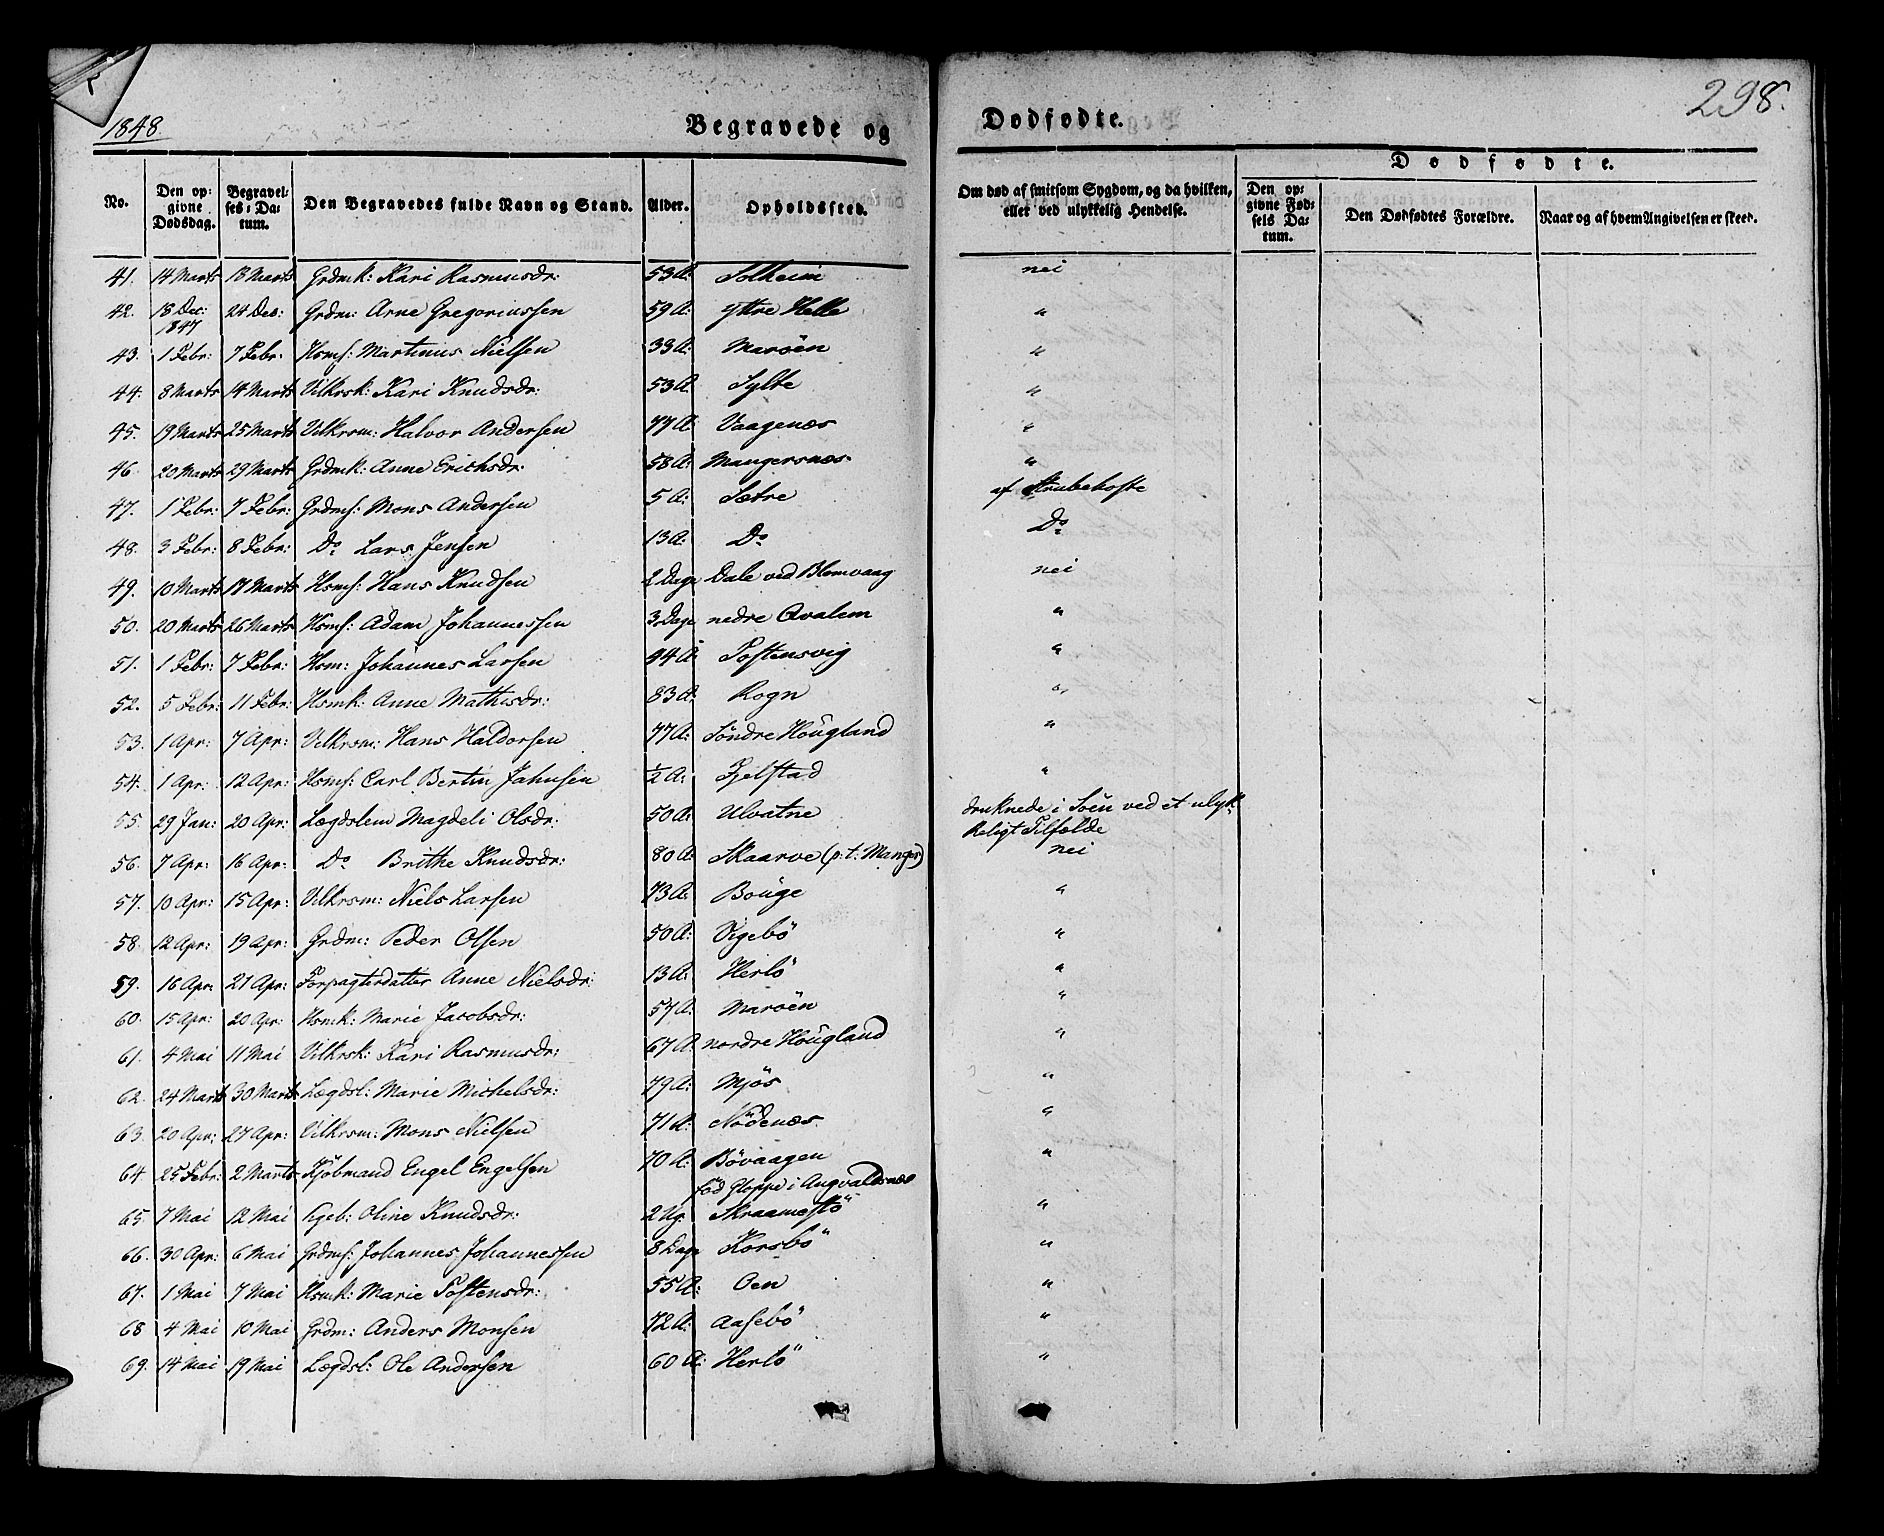 1848.
Begravede og
Dødfødte.
298.
No.
Den opgivne Dødsdag.
Begravelses-Datum.
Den Begravedes fulde Navn og Stand.
Alder.
Opholdssted.
Om død af smitsom Sygdom, og da hvilken, eller ved ulykkelig Hendelse.
Dødfødte.
Den opgivne Fødsels Datum.
Den Dødfødtes Forældre.
Naar og af hvem Angivelsen er skeed.
41. 14 Marts 18 Marts Grdmk: Kari Rasmusdr: 53 A: Solheim nei
42. 18 Dec: 1847 24 Dec: Grdm: Arne Gregoriussen 59 A: yttre Helle "
43. 1 Febr: 7 Febr: Hsmf: Martinus Nielsen 33 A: Marøen "
44. 8 Marts 14 Marts Vilkrsk: Kari Knudsdr: 53 A: Sylte "
45. 19 Marts 25 Marts Vilkrsm: Halvor Andersen 77 A: Vaagenæs "
46. 20 Marts 29 Marts Grdmk: Anne Erichsdr: 58 A: Mangersnæs "
47. 1 Febr: 7 Febr: Grdmf: Mons Andersen 5 A: Sætre af Strubehoste
48. 3 Febr: 8 Febr: Do Lars Jensen 13 A: Do Do
49. 10 Marts 17 Marts Hsmf: Hans Knudsen 2 Dage Dale ved Blomvaag nei
50. 20 Marts 26 Marts Hsmf: Adam Johannessen 3 Dage nedre Qvalem "
51. 1 Febr: 7 Febr: Hsm: Johannes Larsen 44 A: Tostensvig "
52. 5 Febr: 11 Febr: Hsmk: Anne Mathisdr: 83 A: Rogn "
53. 1 Apr: 7 Apr: Vilkrsm: Hans Haldorsen 77 A: Søndre Hougland "
54. 1 Apr: 12 Apr: Hsmf: Carl Bertin Jahnsen ½ A: Fjelstad "
55. 29 Jan: 20 Apr: Lægdslem Magdeli Olsdr: 50 A: Ulvatne druknede i Søen ved et ulyk-
keligt Tilfælde
56. 7 Apr: 16 Apr: Do Brithe Knudsdr: 80 A: Skaarve (p: t: Manger) nei
57. 10 Apr: 15 Apr: Vilkrsm: Niels Larsen 73 A: Bouge "
58. 12 Apr: 19 Apr: Grdm: Peder Olsen 50 A: Vigebö "
59. 16 Apr: 21 Apr: Forpagterdatter Anne Nielsdr: 13 A: Herlö "
60. 15 Apr: 20 Apr: Hsmk: Marie Jacobsdr: 57 A: Marøen "
61. 4 Mai 11 Mai Vilkrsk: Kari Rasmusdr: 67 A: nordre Hougland "
62. 24 Marts 30 Marts Lægdsl: Marie Michelsdr: 79 A: Mjøs "
63. 20 Apr: 27 Apr: Vilkrsm: Mons Nielsen 71 A: Nödenæs "
64. 25 Febr: 2 Marts Kjøbmand Engel Engelsen 70 A: Bövaagen "
fød Gloppe i Augvaldsnæs
65. 7 Mai 12 Mai Oline Knudsdr: 2 Ug: Skraamestö "
66. 30 Apr: 6 Mai Grdmf: Johannes Johannessen 8 Dage Korsbö "
67. 1 Mai 7 Mai Hsmk: Marie Tostensdr: 55 A: Oen "
68 4 Mai 10 Mai Grdm: Anders Monsen 72 A: Aasebö "
69. 14 Mai 19 Mai Lægdsl: Ole Andersen 60 A: Herlö "